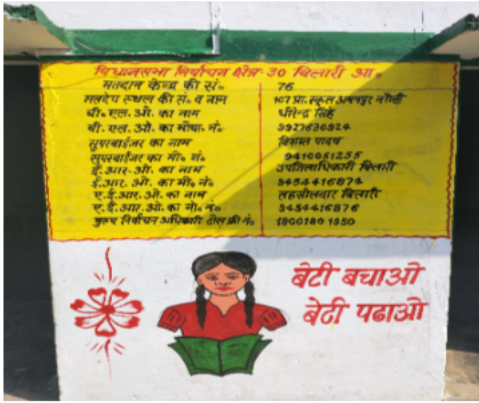 विधानसभा निर्वाचन क्षेत्र-30 बिलारी आ०
मतदान केन्द्र की सं० 76
मतदेय स्थल की सं० व नाम 107 प्रा० स्कूल
बी० एल० ओ० का नाम धीरेन्द्र सिंह
बी. एल. ओ. का मोबा० नं० 9927630924
सुपरवाईजर का नाम
सुपरवाईजर का मो० नं० 9410051255
ई. आर. ओ. का नाम उपजिलाधिकारी बिलारी
ई. आर. ओ. का मो० नं० 9454416874
ए. ई. आर. ओ. का नाम तहसीलदार बिलारी
ए. ई. आर. ओ. का मो. नं० 9454416876
मुख्य निर्वाचन अधिकारी टोल फ्री नं० 18001801950
बेटी बचाओ
बेटी पढाओ